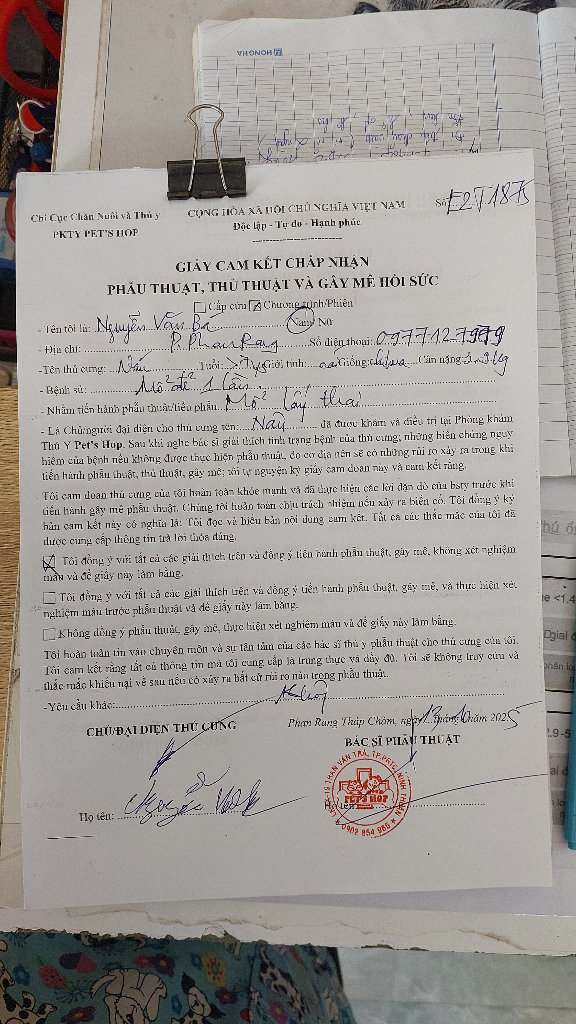 HONGHA
Chi Cục Chăn Nuôi và Thú y
PKTY PET'S HOP
CỘNG HÒA XÃ HỘI CHỦ NGHĨA VIỆT NAM
Độc lập - Tự do - Hạnh phúc
Số: E2T1875
GIẤY CAM KẾT CHẤP NHẬN
PHẪU THUẬT, THỦ THUẬT VÀ GÂY MÊ HỒI SỨC
Cấp cứu Chương trình/Phiên
- Tên tôi là: Nguyễn Văn Ba Nam/ Nữ
- Địa chỉ: P. Phan Rang Số điện thoại: 0977127979
-Tên thú cưng: Nâu Tuổi: Giới tính: cái Giống: Cân nặng: 3.9kg
- Bệnh sử: Mổ đẻ 1 lần.
- Nhằm tiến hành phẫu thuật/tiểu phẫu: Mổ lấy thai
- Là Chủ/người đại diện cho thú cưng tên: Nâu đã được khám và điều trị tại Phòng khám
Thú Y Pet's Hop. Sau khi nghe bác sĩ giải thích tình trạng bệnh của thú cưng, những biến chứng nguy
hiểm của bệnh nếu không được thực hiện phẫu thuật, do cơ địa nên sẽ có những rủi ro xảy ra trong khi
tiến hành phẫu thuật, thủ thuật, gây mê; tôi tự nguyện ký giấy cam đoan này và cam kết rằng.
Tôi cam đoan thú cưng của tôi hoàn toàn khỏe mạnh và đã thực hiện các lời dặn dò của bsty trước khi
tiến hành gây mê phẫu thuật. Chúng tôi hoàn toàn chịu trách nhiệm nếu xảy ra biến cố. Tôi đồng ý ký
bản cam kết này có nghĩa là: Tôi đọc và hiểu bản nội dung cam kết. Tất cả các thắc mắc của tôi đã
được cung cấp thông tin trả lời thỏa đáng.
Tôi đồng ý với tất cả các giải thích trên và đồng ý tiến hành phẫu thuật, gây mê, không xét nghiệm
máu và để giấy này làm bằng.
Tôi đồng ý với tất cả các giải thích trên và đồng ý tiến hành phẫu thuật, gây mê, và thực hiện xét
nghiệm máu trước phẫu thuật và để giấy này làm bằng.
Không đồng ý phẫu thuật, gây mê, thực hiện xét nghiệm máu và để giấy này làm bằng.
Tôi hoàn toàn tin vào chuyên môn và sự tận tâm của các bác sĩ thú y phẫu thuật cho thú cưng của tôi.
Tôi cam kết rằng tất cả thông tin mà tôi cung cấp là trung thực và đầy đủ. Tôi sẽ không truy cứu và
thắc mắc khiếu nại về sau nếu có xảy ra bất cứ rủi ro nào trong phẫu thuật.
-Yêu cầu khác: Không
Phan Rang Tháp Chàm, ngày 13 tháng 10 năm 2025
CHỦ/ĐẠI DIỆN THÚ CƯNG
BÁC SĨ PHẪU THUẬT
Họ tên:
PET'S HOP
0902 854 985